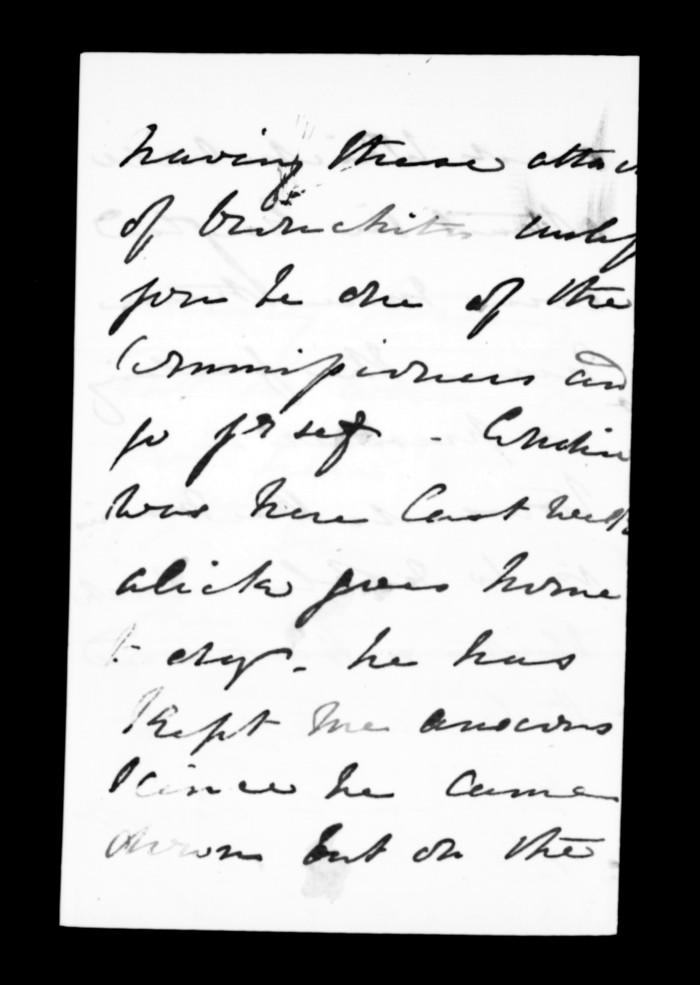 having these attac
of bronchitis
you be one of the
Commissioners and
go
was here last week
Alick goes home
to day. he has
kept me anxious
since he came
down but on the